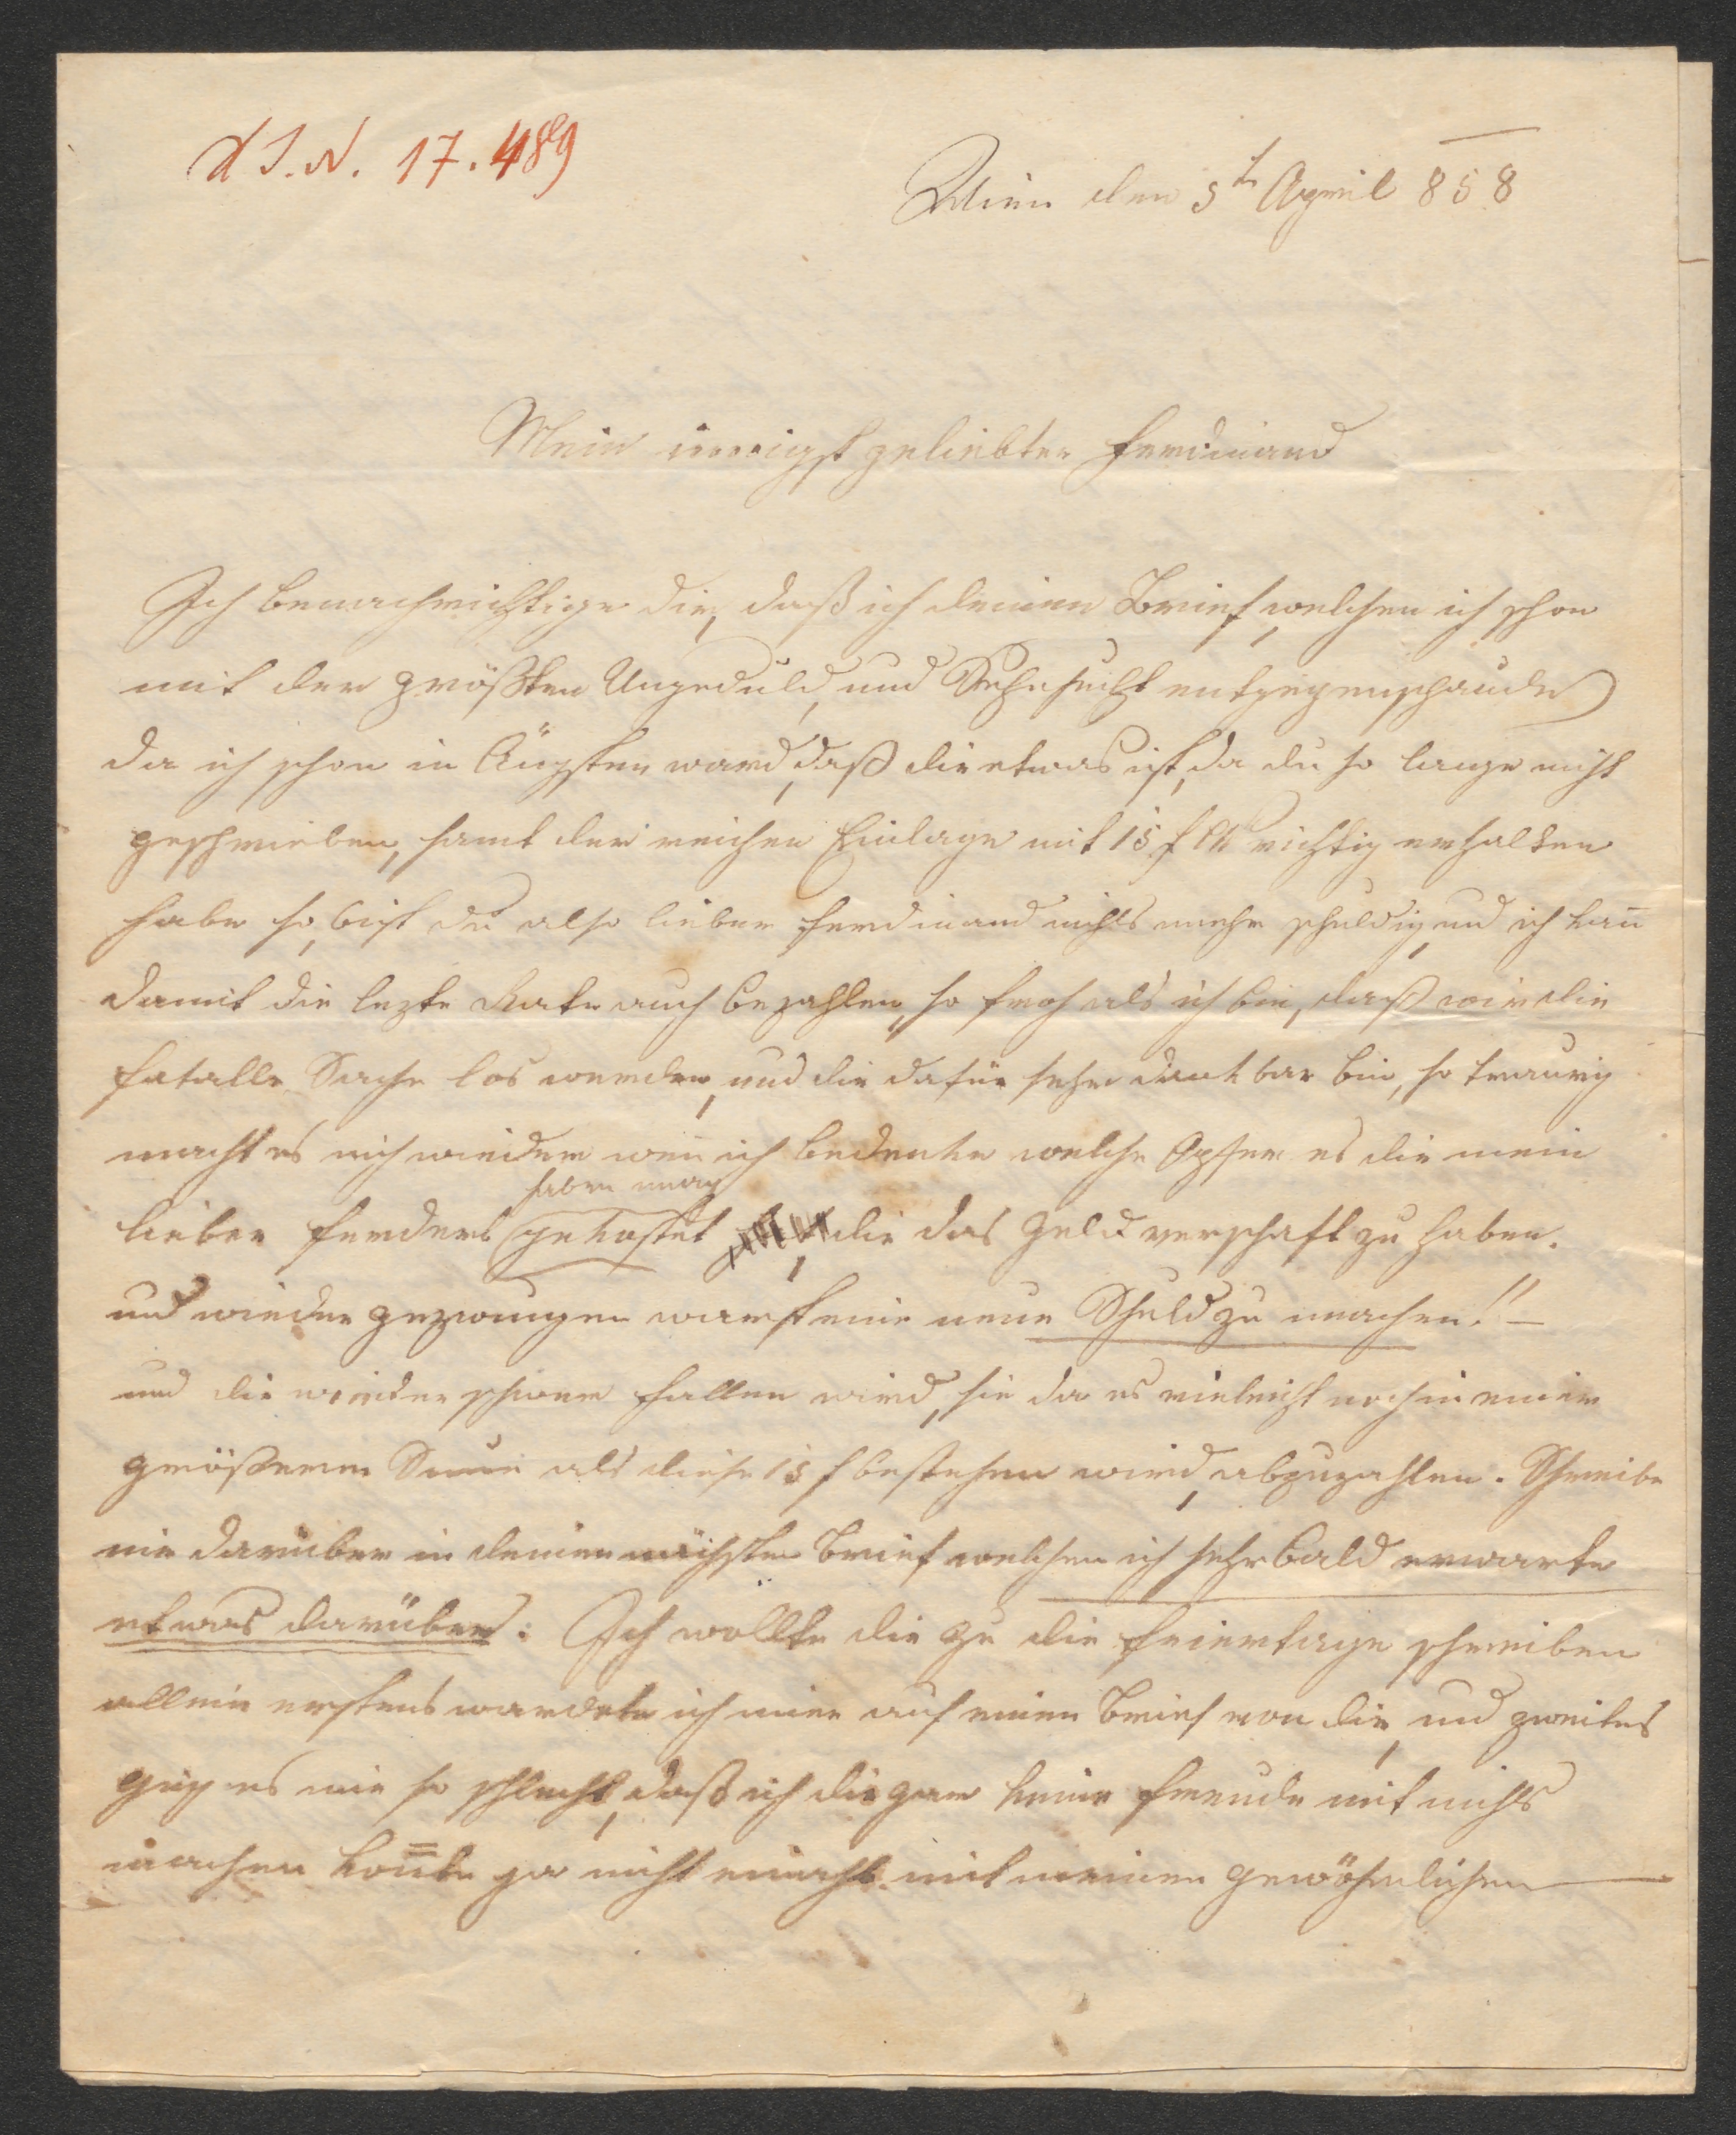 I.N. 17.489
Wien den 5t April 858
Mein innigst geliebter Ferdinand
Ich benachrichtige dir, daß ich deinen Brief, welchen ich schon
mit der größten Ungeduld, und Sehnsucht entgegenschaude
da ich schon in Ängsten ward, daß dir etwas ist, da du so lange nicht
geschrieben, samt der reichen Einlage mit 15 f CM richtig erhalten
habe so, bist du also lieber Ferdinand nichts mehr schuldig, und ich kan̄
damit die lezte Rate auch bezahlen, so froh als ich bin, daß wir die
fatalle Sache los werden, und dir dafür sehr dankbar bin, so traurig
macht es mich wieder wen̄ ich bedenke welche Opfer es dir mein
haben mag
lieber Ferderl gekostet dir das Geld verschaft zu haben.
und wieder gezwungen warst eine neue Schuld zu machen!! –
und dir wieder schwer fallen wird, sie da es vieleicht noch in einer
größeren Sum̄e als diese 15 f bestehen wird, abzuzahlen. Schreibe
mir darüber in deinen nächsten Brief welchen ich sehr bald erwarte
etwas darüber. Ich wollte dir zu die Feiertage schreiben
allein erstens wardete ich imer auf einen Brief von dir, und zweitens
ging es mir so schlecht, daß ich dir gar keine Freude mit nichts
machen kon̄te ja nicht einmahl mit meinen gewöhnlichen